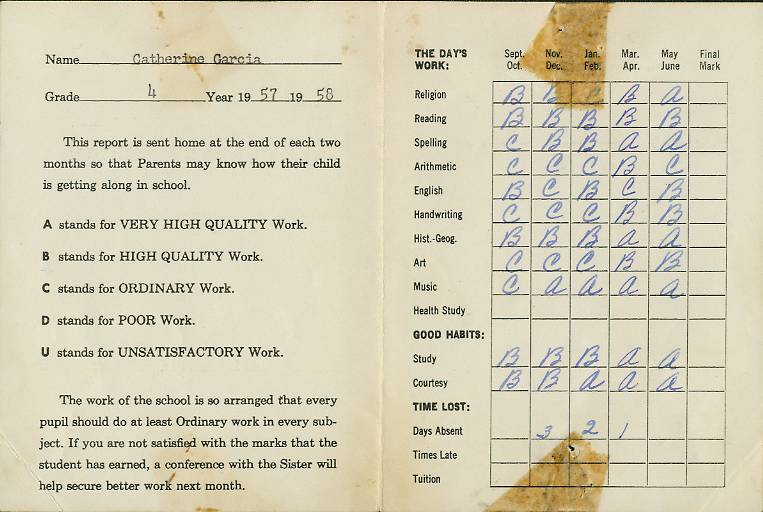 Name Catherine Garcia
Grade 4 Year 19 57 19 58
This report is sent home at the end of each two
months so that Parents may know how their child
is getting along in school.
A stands for VERY HIGH QUALITY Work.
B stands for HIGH QUALITY Work.
C stands for ORDINARY Work.
D stands for POOR Work.
U stands for UNSATISFACTORY Work.
The work of the school is so arranged that every
pupil should do at least Ordinary work in every sub-
ject. If you are not satisfied with the marks that the
student has earned, a conference with the Sister will
help secure better work next month.
THE DAY'S Sept. Nov. Jan. Mar. May Final
WORK: Oct. Dec. Feb. Apr. June Mark
Religion B B C B A
Reading B B B B B
Spelling C B B A A
Arithmetic C C C B C
English B C B C B
Handwriting C C C B B
Hist.-Geog. B B B A A
Art C C C B B
Music C A A A A
Health Study
GOOD HABITS:
Study B B B A A
Courtesy B B A A A
TIME LOST:
Days Absent 3 2 1
Times Late
Tuition